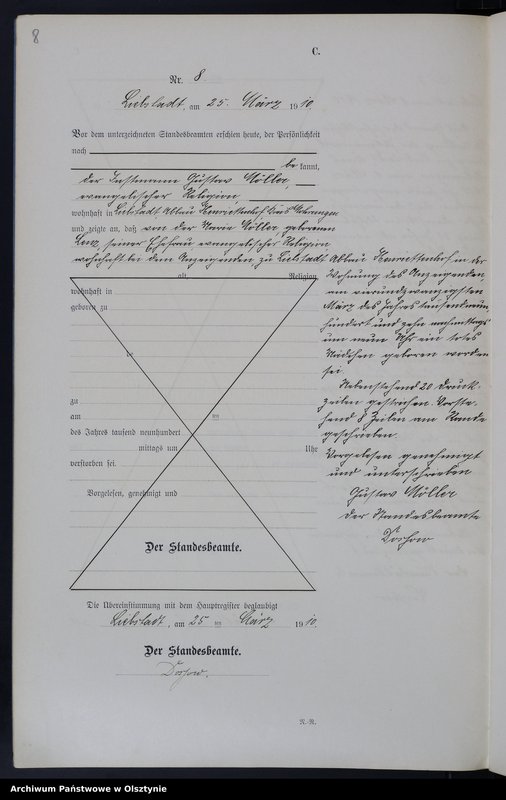 8
C.
Nr. 8
Liebstadt, am 25. März 1910.
Vor dem unterzeichneten Standesbeamten erschien heute, der Persönlichkeit
nach
bekannt,
der Instmann Gustav Möller,
evangelischer Religion,
wohnhaft in Liebstadt Abbau Henriettenhof Kreis Mohrungen
und zeigte an, daß von der Maria Möller, geborenen
seiner Ehefrau evangelischer Religion
wohnhaft bei dem Anzeigenden zu Liebstadt Abbau Henriettenhof in der
Wohnung des Anzeigenden
am vierundzwanzigsten
März des Jahres tausendneun-
hundert und zehn nachmittags
um neun Uhr ein totes
Mädchen geboren worden
sei
Nebenstehend 20 Druck-
zeilen gestrichen. Vorste-
hend 8 Zeilen am Rande
geschrieben.
Vorgelesen genehmigt
und unterschrieben
Gustav Möller
Der Standesbeamte
alt Religion
wohnhaft in
geboren zu
zu
am
des Jahres tausend neunhundert
mittags um Uhr
verstorben sei.
Vorgelesen, genehmigt und
Der Standesbeamte.
Die Übereinstimmung mit dem Hauptregister beglaubigt
Liebstadt, am 25 ten März 1910.
Der Standesbeamte.
N.-R.
Archiwum Państwowe w Olsztynie